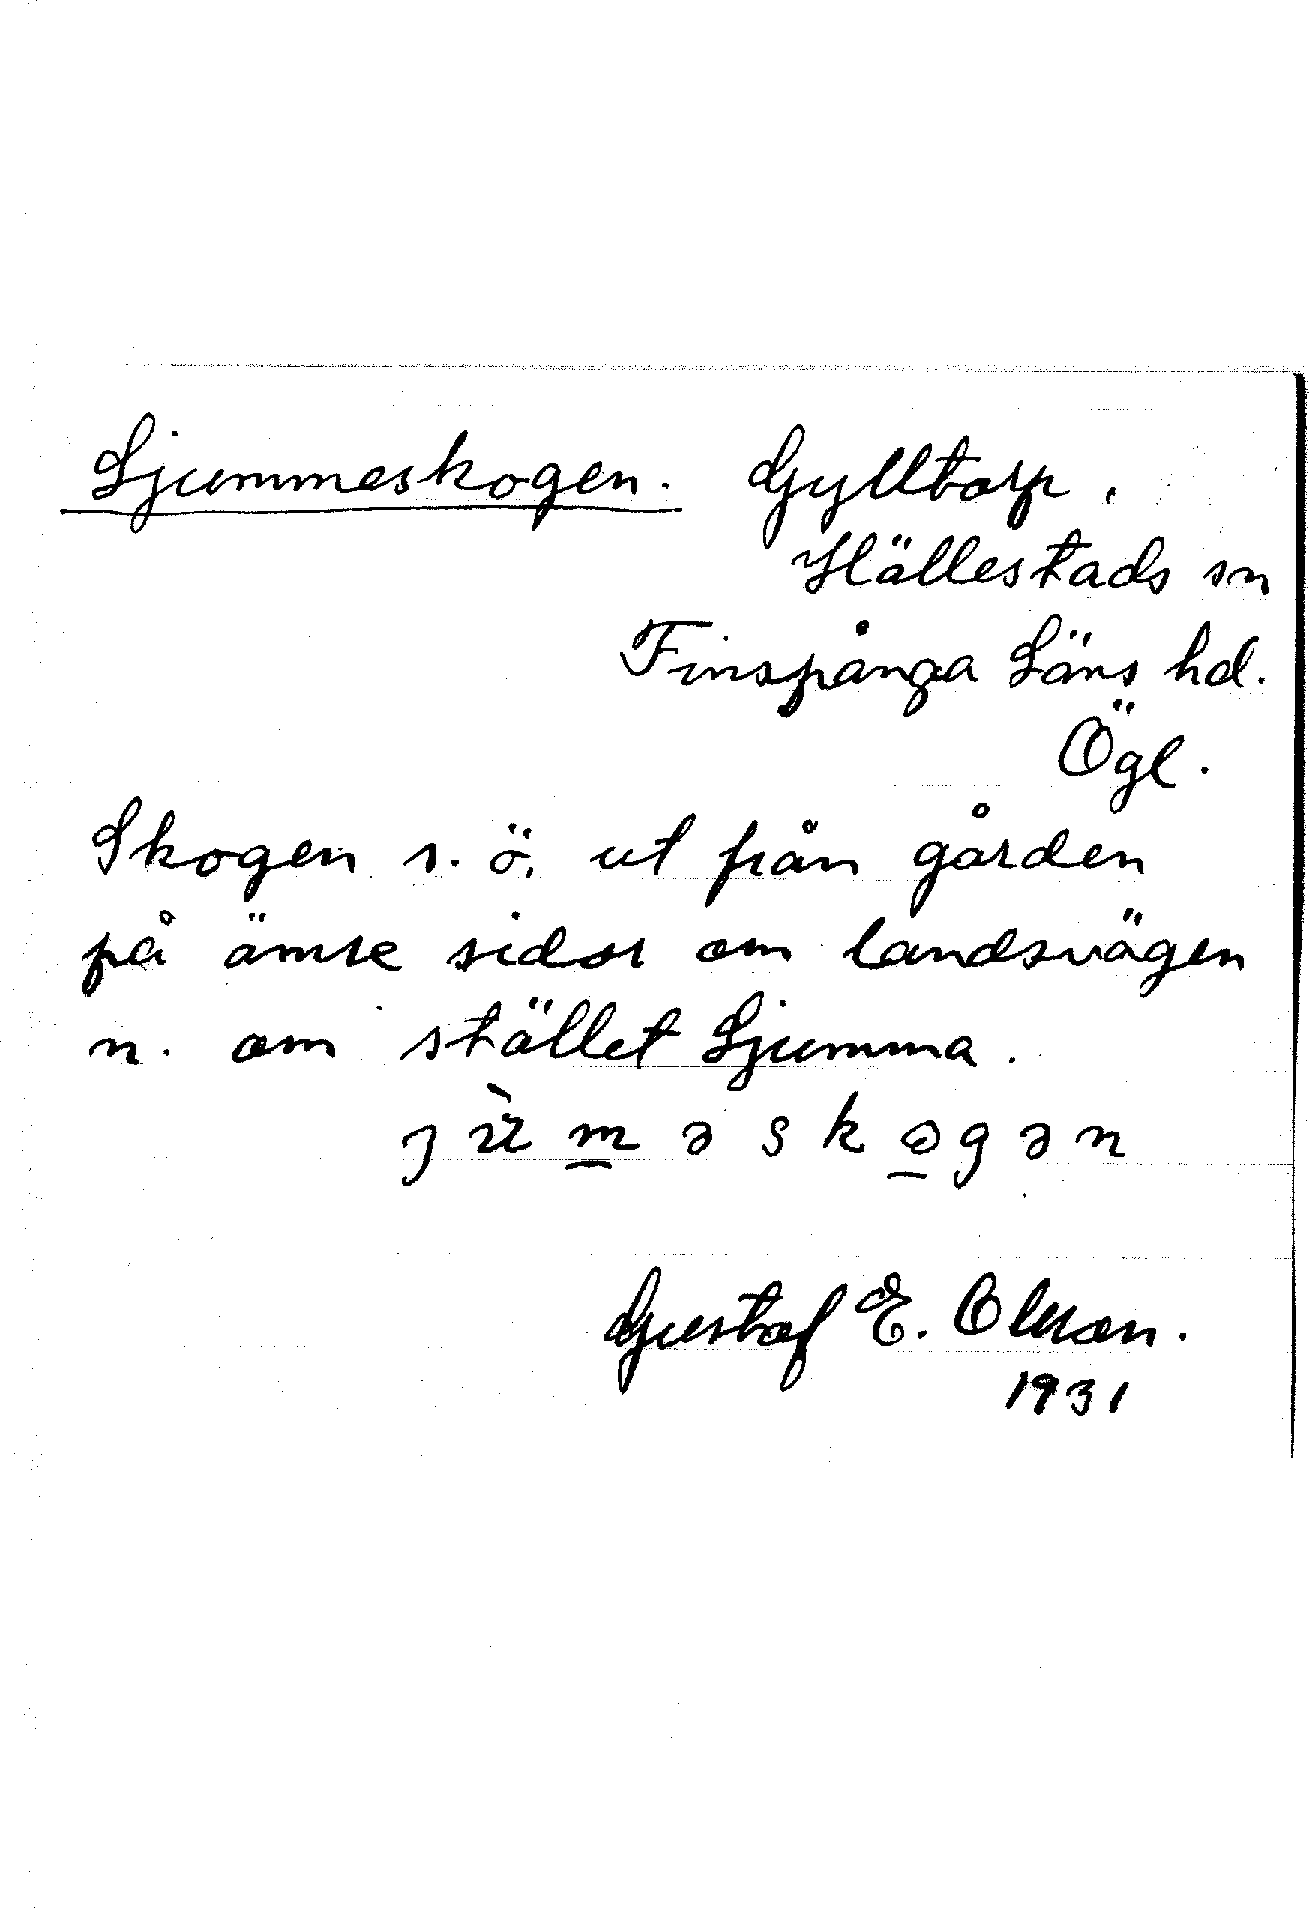 Ljummeskogen. Gylltorp,
Hällestads sn
Finspånga Läns hd.
Ögl.
Skogen s.ö. ut från gården
på ömse sidor om landsvägen
n. om stället Ljumma.
Gustaf E. Olsson.
1931